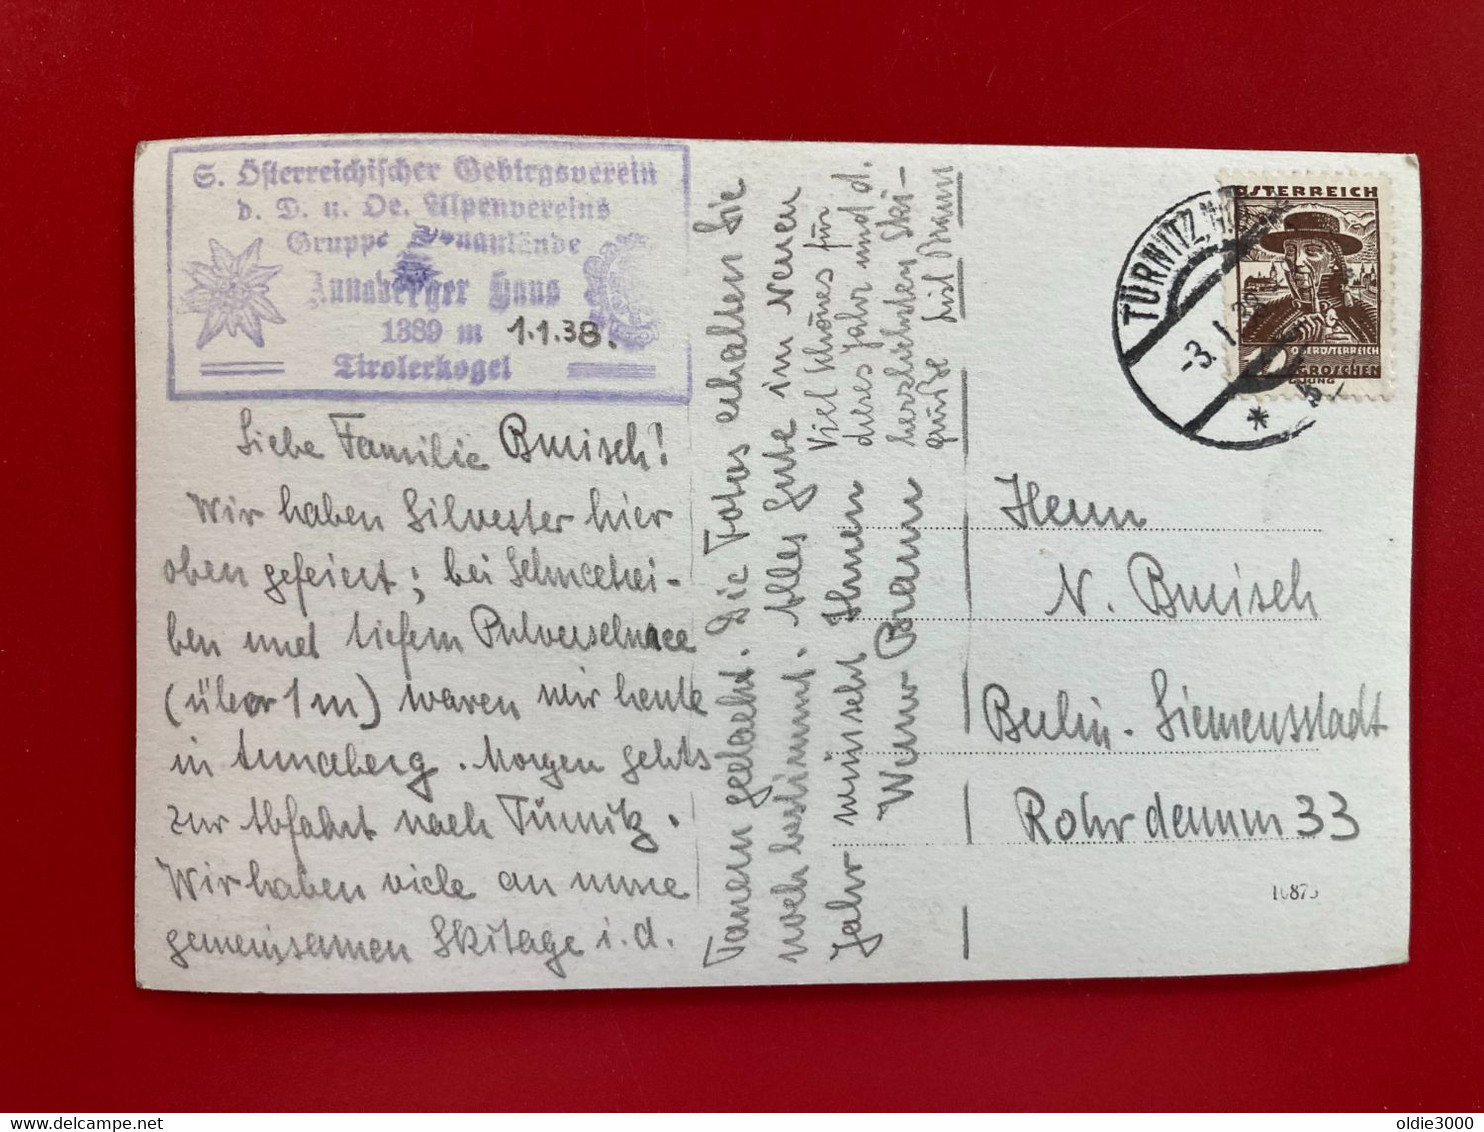 S. Österreichischer Gebirgsverein
d. D. u. Oe. Alpenvereins
Gruppe Donaulände
Annaberger Haus
1389 m 1.1.38.
Tirolerkogel
Liebe Familie
Wir haben Silvester hier
oben gefeiert; bei Schneetrei-
ben und tiefem Pulverschnee
(über 1 m) waren wir heute
in Annaberg. Morgen gehts
zur Abfahrt nach Türnitz.
Wir haben viele an unsre
gemeinsamen Skitage i. d.
Tauern gedacht. Die Fotos erhalten Sie
noch bestimmt. Alles Gute im Neuen
Jahr wünscht Ihnen
Werner Braun
Viel Schönes für
dieses Jahr und d.
herzlichsten Ski-
grüße Braun
TÜRNITZ
-3. I. 38
*
ÖSTERREICH
OBERÖSTERREICH
GROSCHEN
Herrn
N.
Berlin-Siemensstadt
Rohrdamm 33
10875
delcampe.net
oldie3000